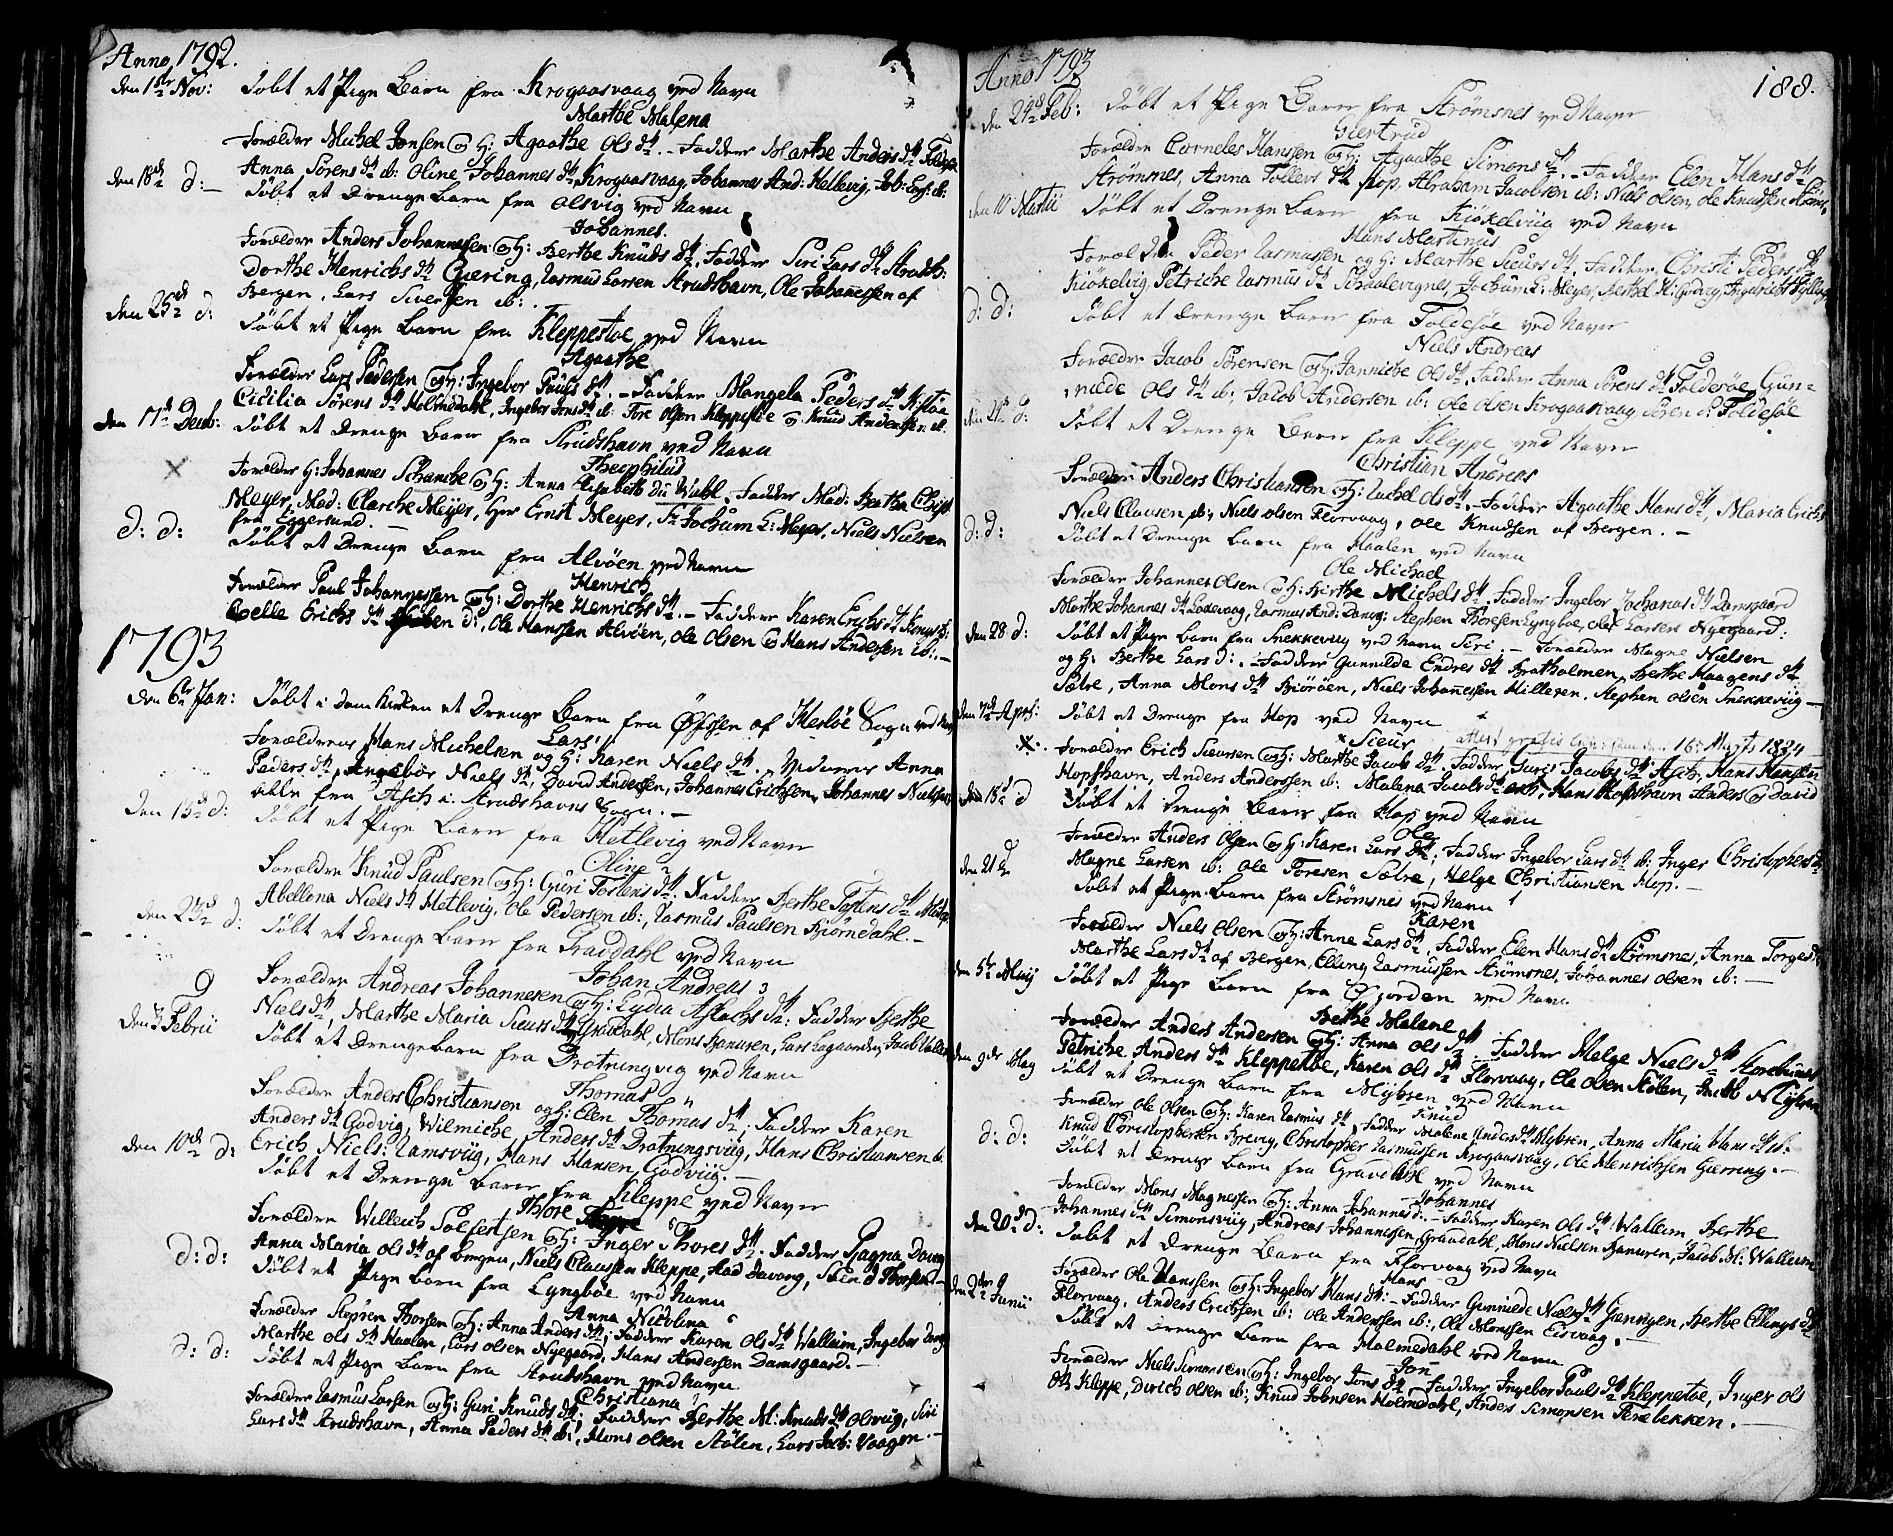 Anno 1792.
den 1ste Nov: Døbt et Pige Barn fra Krogaasvaag ved Navn
Marthe Malena
Forældre Michel Jonsen og H: Agaathe Ols dtr. - Faddere Marthe Anders dtr
Anna Sørens dtr ib: Oline Johannes dtr Krogaasvaag, Johannes And: Hellevig,
den 18de d:- Døbt et Drenge Barn fra Olsvig ved Navn
Johannes.
Forældre Anders Johannessen og H: Berthe Knuds dtr. Faddere Siri Lars dtr Strudsh:
Dorthe Henrichs dtr Giering, Rasmus Larsen Strudshavn, Ole Johannessen af
Bergen, Lars Sivertsen ib:.
den 25de d: Døbt et Pige Barn fra Kleppestøe ved Navn
Agaathe
Forældre Lars Pedersen og H: Ingebor Pouls dtr. - Faddere Mangela Peders dtr
Cicilia Sørens dtr Holmedahl, Ingebor Jons dtr ib: Tore Olsen Kleppestøe og Knud Andersen ib.
den 17de Decb: Døbt et Drenge Barn fra Strudshavn ved Navn
Theophilus
Forældre H: Johannes Schanche og H: Anna Elisabeth Du Wahl. Faddere Mad: Berthe Christ:
Meyer, Mad: Clarche Meyer, Herr Ernst Meyer, Sr Jochum L: Meyer, Niels Nielsen
fra Eggersund. -
d: d: Døbt et Drenge Barn fra Alvøen ved Navn
Henrich
Forældre Paul Johannessen og H: Dorthe Henrichs dtr. - Faddere Karen Erichs dtr
Erichs dtr d:, Ole Hanssen Alvøen, Ole Olsen og Hans Andersen ib:. -
1793
den 6te Jan: Døbt i Dom Kirken et Drenge Barn fra af Herløe Sogn ved Navn
Lars,
Forældrene Hans Michelsen og H: Karen Niels dtr. Vidnerne Anna
Peders dtr, Ingebor Niels dtr, David Andersen, Johannes Erichsen, Johannes Nielsen
alle fra Asch i Strudshavns Sogn. -
den 13de d: Døbt et Pige Barn fra Hetlevig ved Navn
Oline
Forældre Knud Paulsen og H: Guri Tostens dtr. Faddere Berthe dtr
Abellona Niels dtr Hetlevig, Ole Pedersen ib:, Rasmus Paulsen Biørndahl. -
den 23de d: Døbt et Drenge Barn fra Gravdahl ved Navn
Johan Andreas
Forældre Andreas Johannesen og H: Lydia Aslachs dtr: Faddere Berthe
Niels dtr, Marthe Maria Sieurs dtr Gravdahl, Mons Hansen, Lars
den Febrii Døbt et Drengebarn fra Drotningvig ved Navn
Thomas
Forældre Anders Christiansen og H: Elen Thomas dtr. Faddere Karen
Anders dtr Godvig, Wilmiche Anders dtr Drotningsviig, Hans Christiansen ib.
Erich Niels: Ramsviig, Hans Hansen Godviig. -
den 10de d: Døbt et Drenge Barn fra Kleppe ved Navn
Thore
Forældre Willech og H: Inger Thores dtr. Faddere Ragna
Anna Maria Ols dtr af Bergen, Niels Claussen Kleppe, Aad Davang,
d: d: Døbt et Pige Barn fra Lyngbøe ved Navn
Anna Nicolina
Forældre Thorsen og H: Anna Anders dtr; Faddere Karen Ols dtr Walleim, Ingebor
Marthe Ols dtr Haalen, Lars Olsen Nyegaard, Hans Andersen Damsgaard. -
d: d: Døbt et Pige Barn fra Strudshavn ved Navn
Christiana
Forældre Rasmus Larsen og H: Guri Knuds dtr; Faddere Berthe M: Knuds dtr Olsviig, Siri
Lars dtr Strudshavn, Anna Peders dtr ib:, Mons Olsen Stølen, Lars Jacb: Vaagen. -
Anno 1793
188.
den 24de Feb: Døbt et Pige Barn fra Strømsnes ved Navn
Giertrud
Forældre Corneles Hanssen og H: Agaathe Simons dtr. - Faddere Elen Hans dtr
Strømsnes, Anna Tollevs dtr Hop, Abraham Jacobsen ib: Niels Olsen, Ole Knudsen
den 10 Martii Døbt et Drenge Barn fra Kiøkelviig ved Navn
Hans Martinus
Forældre Peder Rasmussen og H: Marthe Sieurs dtr. Faddere Christi Peders dtr
Kiøkelvig, Petriche Rasmus dtr Jochum L: Meyer, Berthel H: Godvig,
d: d: Døbt et Drenge Barn fra Foldesøe ved Navn
Niels Andreas
Forældre Jacob Sørensen og H: Janniche Ols dtr. Faddere Anna Sørens dtr Foldesøe, Gun-
nilde Ols dtr ib: Jacob Andersen ib: Ole Olsen Krogaasvaag, Sören d: Foldesøe
d: Døbt et Drenge Barn fra Kleppe ved Navn
Christian Andreas
Forældre Anders Christiansen og H: Rachel Ols dtr. Faddere Agaathe Hans dtr, Maria Erichs
Niels Clausen ib:, Niels Olsen Florvaag, Ole Knudsen af Bergen. -
d: d: Døbt et Drenge Barn fra Haalen ved Navn
Ole Michael
Forældre Johannes Olsen og H: Birthe Michels dtr. Faddere Ingebor Johanas dtr Damsgaard
Marthe Johannes dtr Rasmus And: Stephen Thoresen Lyngbøe, Ole Larsen Nyegaard:
den 28 d: Døbt et Pige Barn fra Snekkeviig ved Navn Siri. - Forældre Magne Nielsen
og H: Berthe Lars d: - Faddere Gunnilde Endres dtr Bratholmen, Berthe Haagens dtr
Sætre, Anna Mons dtr Biørøen, Niels Johannessen Hilleren, Stephen Olsen Snekkeviig -
den 7de Apr: Døbt et Drenge fra Hop ved Navn
Sieur
attest gratis 16 Martz 1824
Forældre Erich Sieursen og H: Marthe Jacobs dtr. Faddere Guri Jacobs dtr Asch, Hans Hansen
Hopshavn, Anders Anderssen ib: Malena Jacobs dtr Asch, Hans Hopshavn Anders og David
den 18de d Døbt et Drenge Barn fra Hop ved Navn
Ole
Forældre Anders Olsen og H: Karen Lars dtr; Faddere Ingebor Lars dtr ib: Inger Christophers dtr
Magne Larsen ib: Ole Toresen Sætre, Helge Christiansen Hop. -
den 21 d Døbt et Pige Barn fra Strømsnes ved Navn
Karen
Forældre Niels Olsen og H: Anna Lars dtr. Faddere Elen Hans dtr Strømsnes, Anna Torges dtr
Marthe Lars dtr af Bergen, Elling Rasmussen Strømsnes, Johannes Olsen ib: -
den 5te Maij Døbt et Pige Barn fra Gjorden ved Navn
Bethe Malene
Forældre Anders Andersen og H: Anna Ols dtr. Faddere Helge Niels dtr
Petriche Anders dtr Kleppestøe, Karen Ols dtr Florvaag, Ole Olsen Stölen,
den 9de Maij Døbt et Drenge Barn fra Myhren ved Navn
Knud
Forældre Ole Olsen og H: Karen Rasmus dtr, Faddere Malene Anders dtr Myhren, Anna Maria Hans dtr ib.
Knud Christophersen Brevig, Christopher Rasmussen Krogaasvaag, Ole Henrichsen Gierring. -
d: d: Døbt et Drenge Barn fra Gravdahl ved Navn
Johannes
Forældre Mons Magnessen og H: Anna Johannes d: - Faddere Karen Ols dtr Walleim, Berthe
Johannes dtr Simonsviig, Andreas Johannessen Gravdahl, Mons Nielsen Jacob M: Walleim
den 20de d: Døbt et Drenge Barn fra Florvaag ved Navn
Hans
Forældre Ole Hanssen og H: Ingebor Hans d: - Faddere Gunnilde Niels dtr Berthe Ellings dtr
Florvaag, Anders Erichsen ib: Ole Anderssen ib:, Ole Monssen Eisvaag. -
den 2den Junii Døbt et Drenge Barn fra Holmedahl ved Navn
Jon
Forældre Niels Simonsen og H: Ingebor Jons dtr, Faddere Ingebor Pauls dtr Kleppestøe, Inger Ols
dtr Kleppe, Dirich Olsen ib:, Knud Johnsen Holmedahl, Anders Simonsen Fenebekken. -